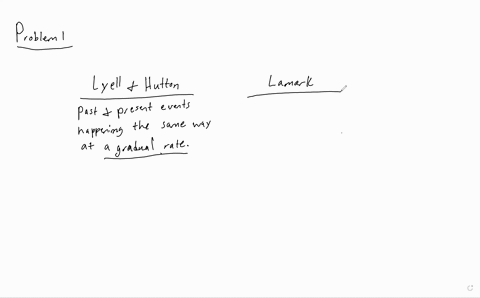 Problem 1
Lyell & Hutton
Lamark
past & present events
happening the same way
at a gradual rate.